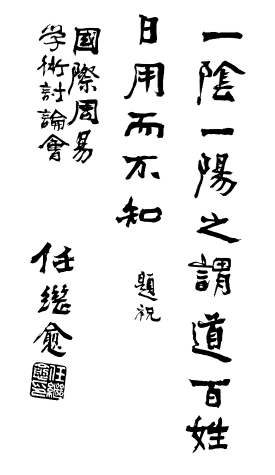 一陰一陽之謂道百姓
日用而不知
題祝
國際周易
學術討論會
任繼愈
任繼愈印